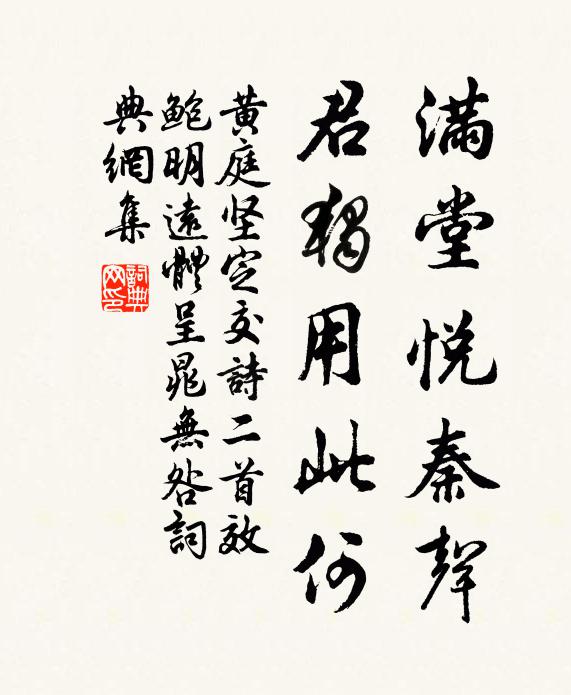 滿堂悅秦聲
君獨用此何
黃庭坚定交詩二首效
鮑明遠體呈晁無咎詞
典網集
詞典网印